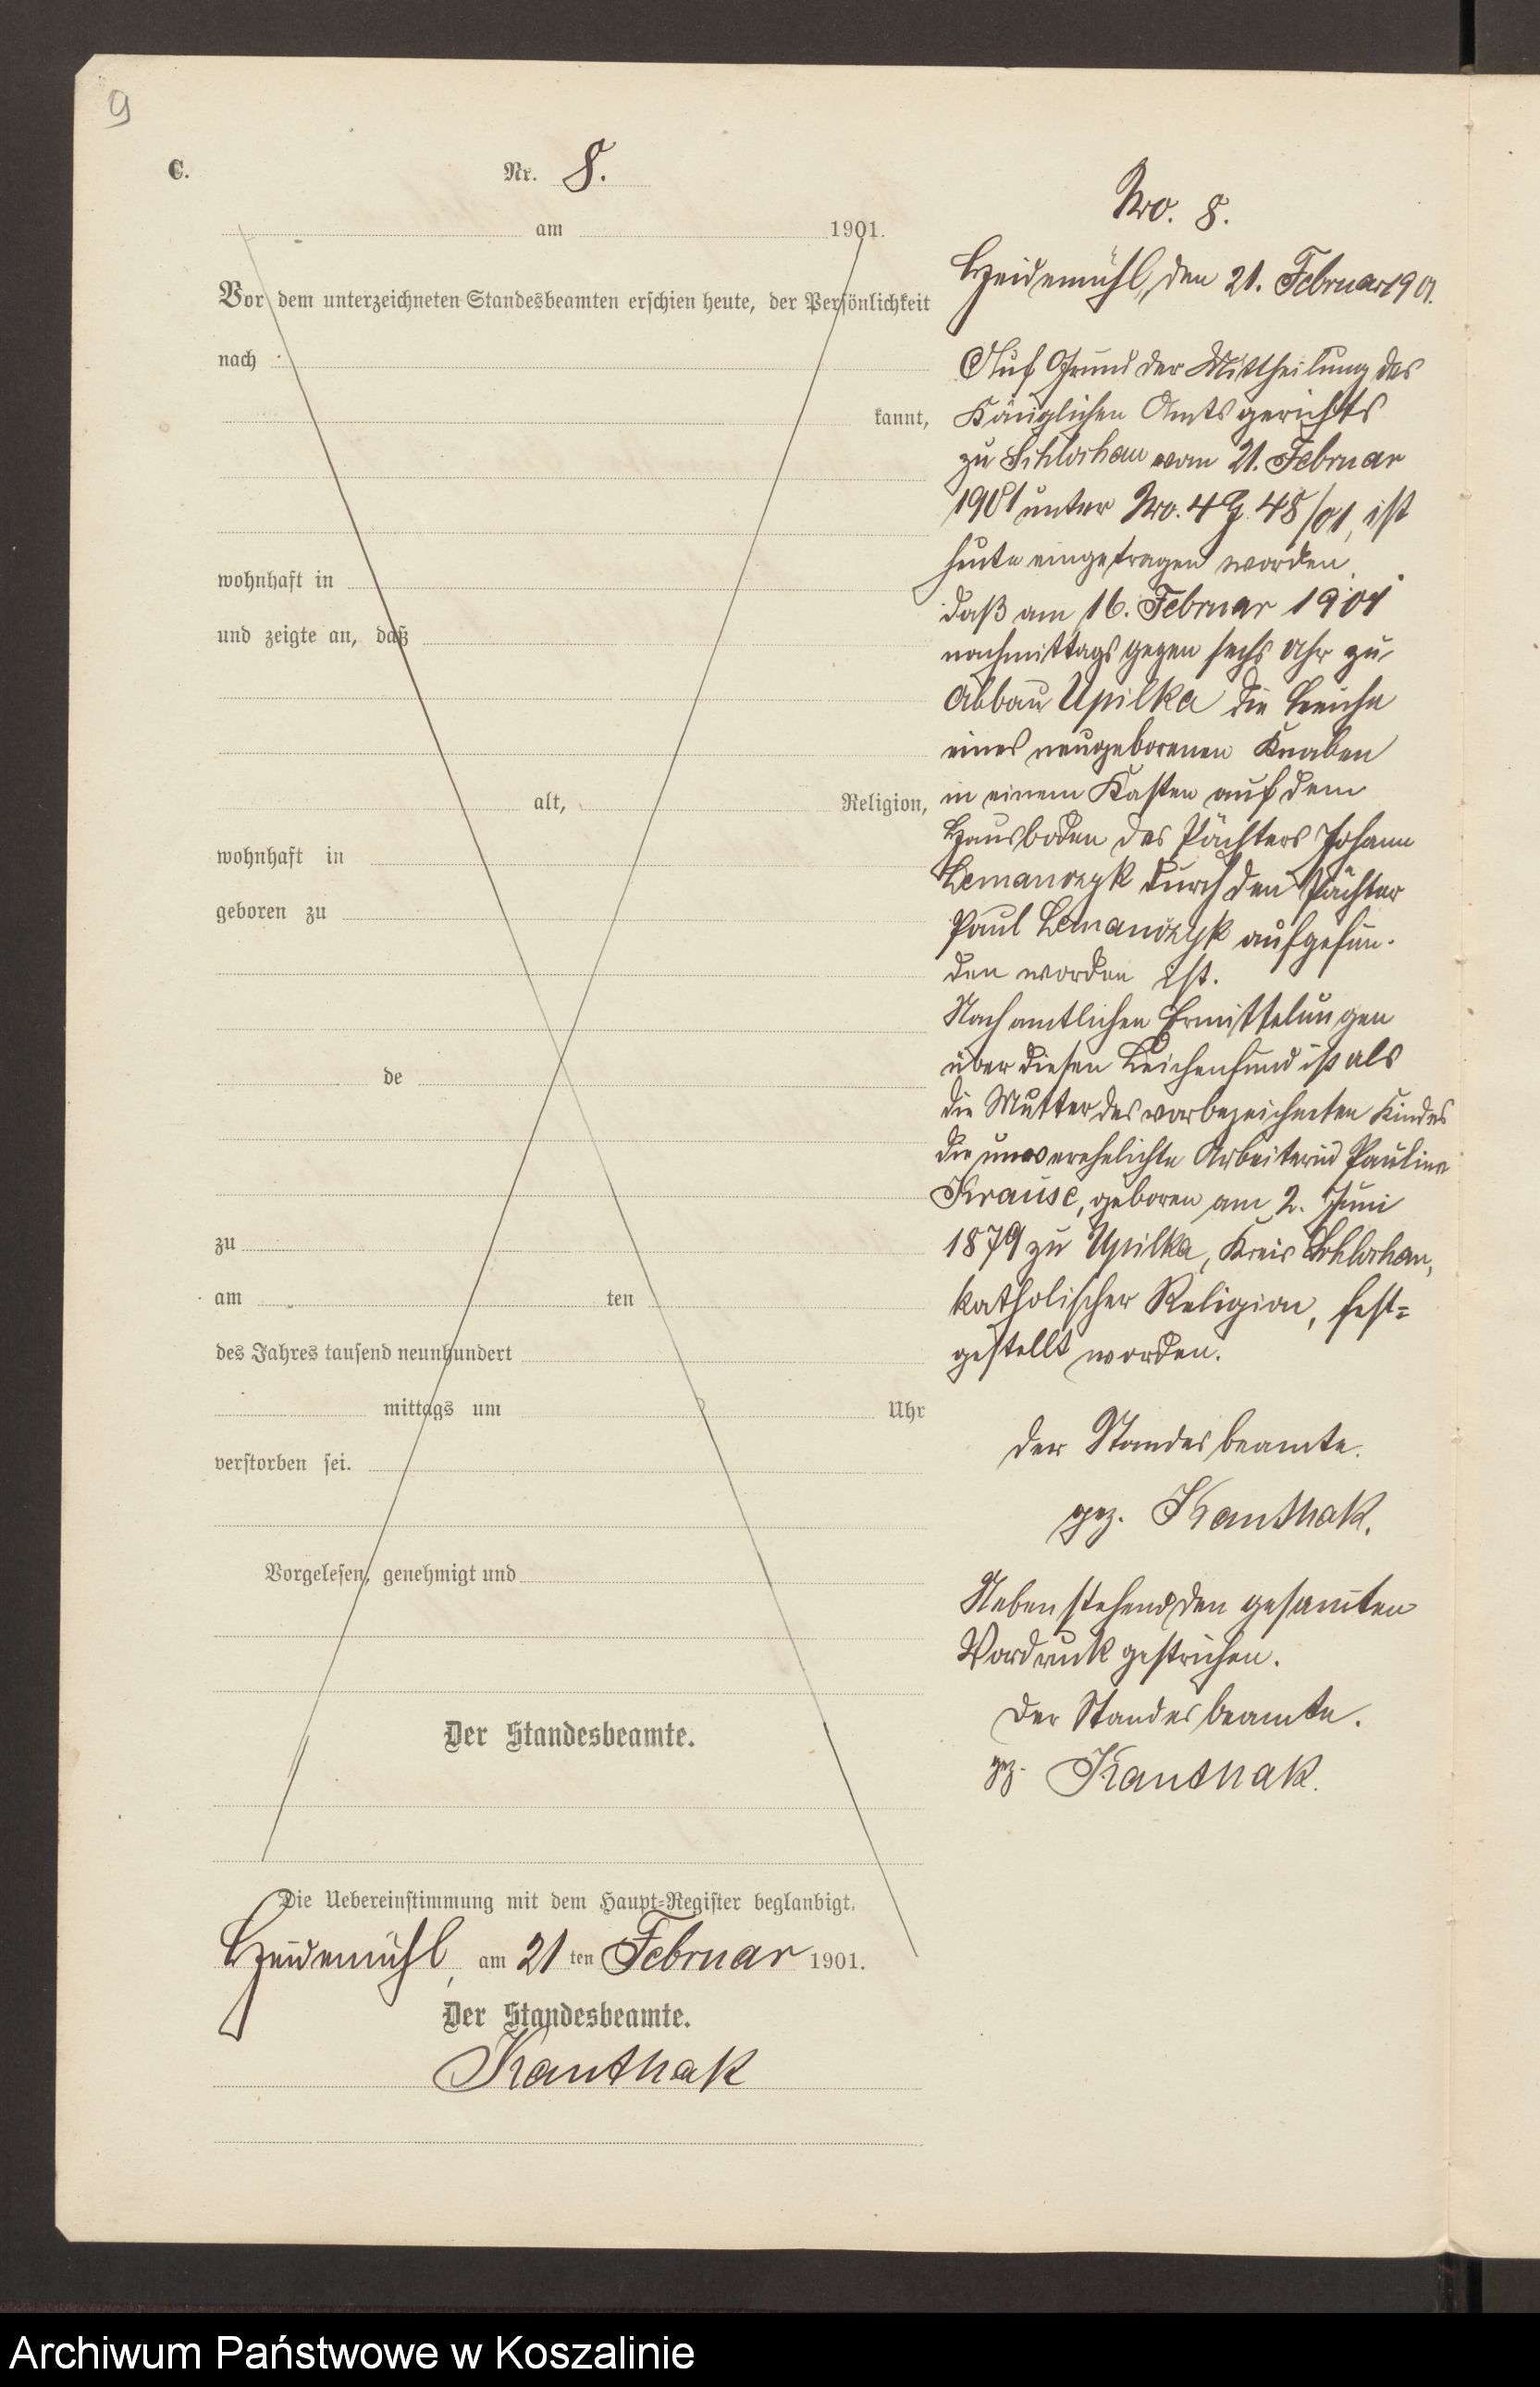 9
C.
Nr. 8.
am 1901.
Vor dem unterzeichneten Standesbeamten erschien heute, der Persönlichkeit
nach
kannt,
wohnhaft in
und zeigte an, daß
alt, Religion,
wohnhaft in
geboren zu
de
zu
am ten
des Jahres tausend neunhundert
mittags um Uhr
verstorben sei.
Vorgelesen, genehmigt und
Der Standesbeamte.
Die Uebereinstimmung mit dem Haupt-Register beglaubigt.
Heidemühl, am 21ten Februar 1901.
Der Standesbeamte.
Kanthak
No. 8.
Heidemühl, den 21. Februar 1901.
Auf Grund der Mittheilung des
Königlichen Amtsgerichts
zu Schlochau vom 21. Februar
1901 unter No. 4 G. 48/01, ist
heute eingetragen worden,
daß am 16. Februar 1901
nachmittags gegen sechs Uhr zu
Abbau Upilka die Leiche
eines neugeborenen Knaben
in einem Kasten auf dem
Hausboden des Pächters Johann
Lemanczyk durch den Pächter
Paul Lemanczyk aufgefun-
den worden ist.
Nach amtlichen Ermittelungen
über diesen Leichenfund ist als
die Mutter des vorbezeichneten Kindes
die unverehelichte Arbeiterin Pauline
Krause, geboren am 2. Juni
1879 zu Upilka, Kreis Schlochau,
katholischer Religion, fest=
gestellt worden.
Der Standesbeamte.
gez. Kanthak.
Nebenstehend den gesamten
Vordruck gestrichen.
Der Standesbeamte.
gez. Kanthak.
Archiwum Państwowe w Koszalinie